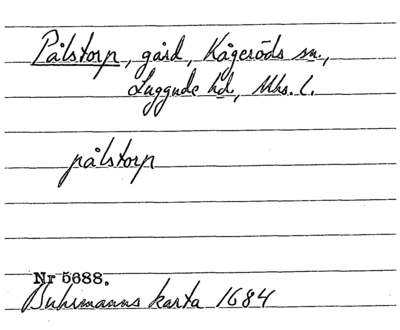 Pålstorp, gård, Kågeröds sn.,
Luggude hd., Mhs. l.
pålstorp
Nr 5688.
Buhrmanns karta 1684